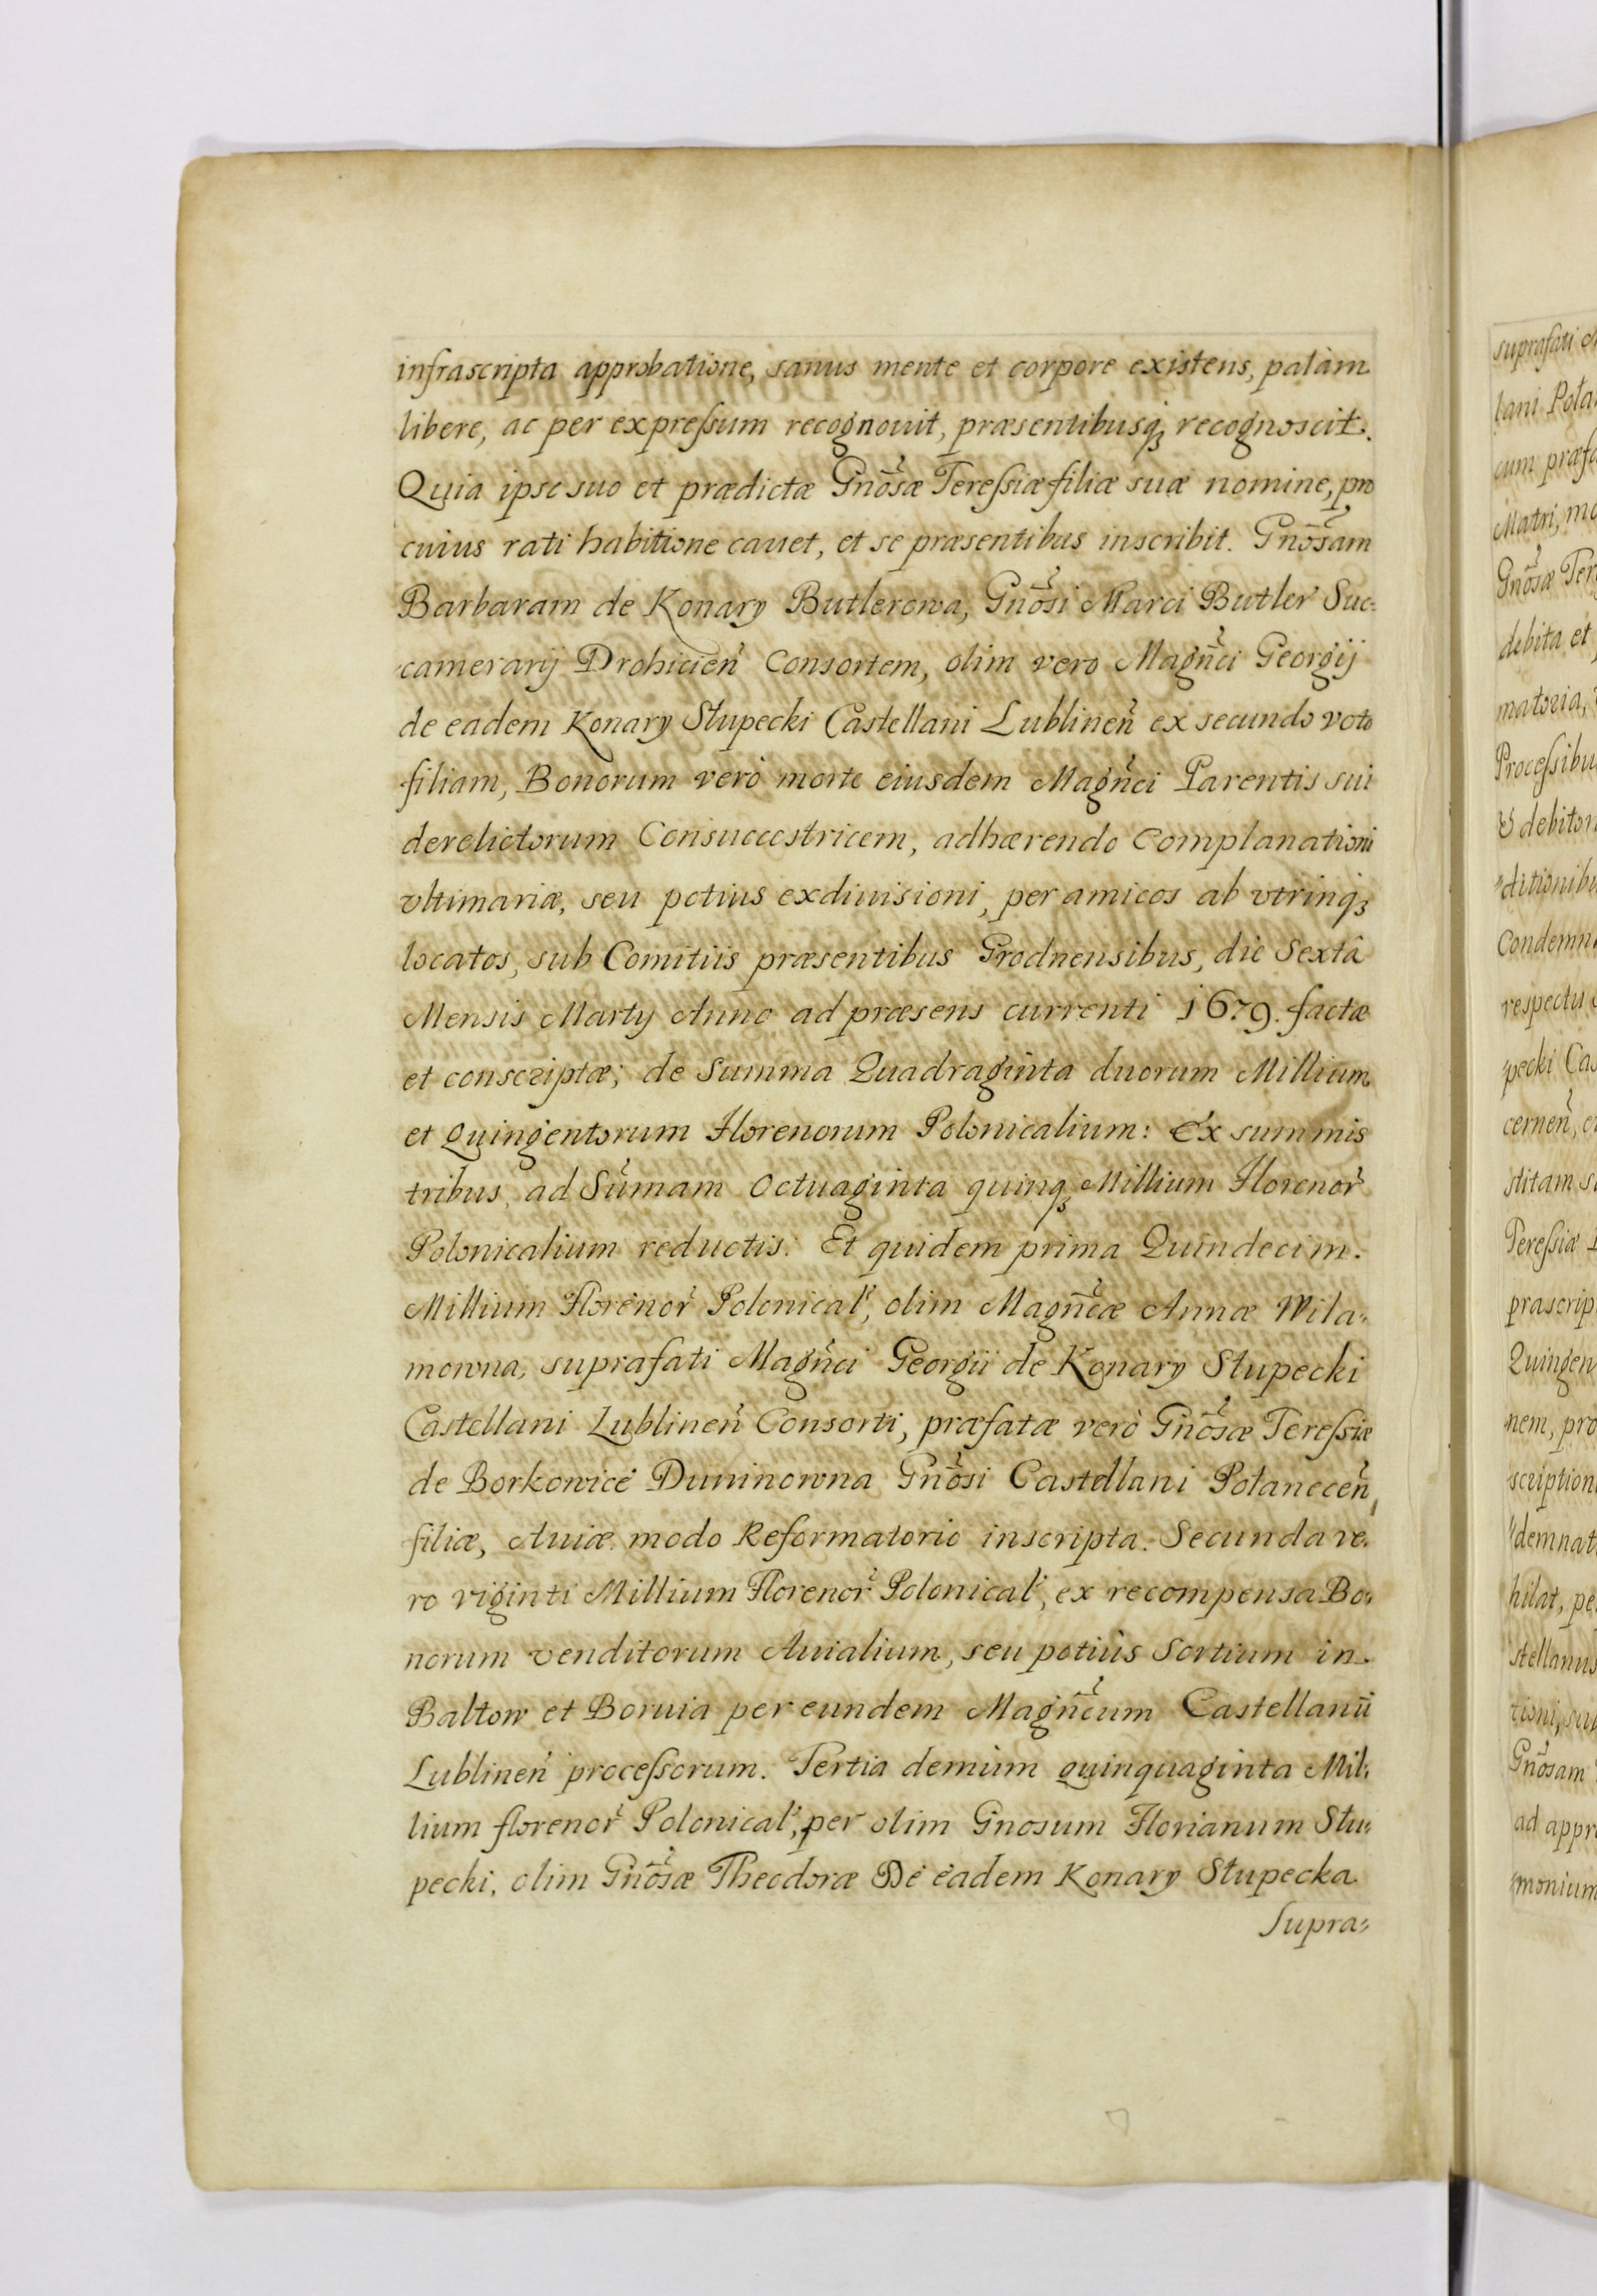 infrascripta approbatione, sanus mente et corpore existens, palàm
libere, ac per expreſsum recognouit, præsentibusq₃ recognoscit.
Quia ipse suo et prædictæ Gnõsæ Tereſsiæ filiæ suæ nomine, pro
cuius rati habitione cauet, et se præsentibus inscribit. Gnõsam
Barbaram de Konary Butlerowa, Gnõsi Marci Butler Suc-
camerarij Drohicien̉ Consortem, olim vero Magñci Georgij
de eadem Konary Słupecki Castellani Lublinen̉ ex secundo voto
filiam, Bonorum verò morte eiusdem Magñci Parentis sui
derelictorum Consuccestricem, adhærendo Complanationi
vltimariæ, seu potius exdiuisioni, per amicos ab vtrinq₃
locatos, sub Comitiis præsentibus Grodnensibus, die Sextâ
Mensis Martij Anno ad præsens currenti 1679. factæ
et conscriptæ; de Summa Quadraginta duorum Millium
et Quingentorum Florenorum Polonicalium: Ex summis
tribus, ad Sum̉am Octuaginta quinq₃ Millium Florenor̉
Polonicalium reductis. Et quidem prima Quindecim.
Millium Florenor̉ Polonical̉, olim Magñcæ Annæ Wila-
mowna, suprafati Magñci Georgii de Konary Słupecki
Castellani Lublinen̉ Consorti, præfatæ verò Gnõsæ Tereſsiæ
de Borkowice Duninowna Gnõsi Castellani Połanecen̉
filiæ, Auiæ modo Reformatorio inscripta. Secunda ve-
ro viginti Millium Florenor̉ Polonical̉, ex recompensa Bo-
norum venditorum Auialium, seu potiùs Sortium in
Bałtow et Boruia per eundem Magñcum Castellanũ
Lublinen̉ proceſsorum. Tertia demùm quinquaginta Mil-
lium florenor̉ Polonical̉, per olim Gnosum Florianum Słu-
pecki, olim Gnõsæ Theodoræ De eadem Konary Słupecka
Supra-
suprafati
lani Poła
cum præfa
Matri, mo
Gnõsæ Ter
debita et
matoria,
Proceſsibu
& debitor
ditionibu
Condemn
respectu
pecki Cas
cernen̉,
ditam
Tereſsiæ
præscrip
Quingen
nem, pro
scription
demnat
hilat, pe
stellanus
tioni,
Gnõsam
ad appr
monium